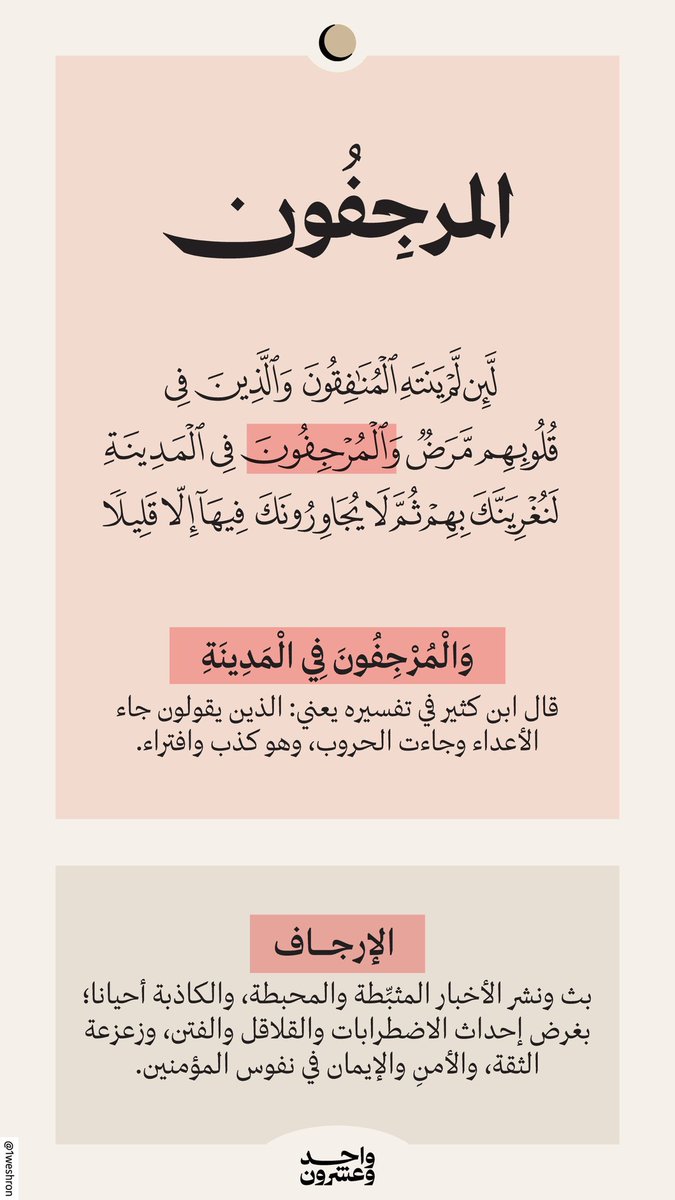 المرجِفُون
لَّئِن لَّمْ يَنتَهِ ٱلْمُنَٰفِقُونَ وَٱلَّذِينَ فِى
قُلُوبِهِم مَّرَضٌ وَٱلْمُرْجِفُونَ فِى ٱلْمَدِينَةِ
لَنُغْرِيَنَّكَ بِهِمْ ثُمَّ لَا يُجَاوِرُونَكَ فِيهَآ إِلَّا قَلِيلًا
وَالْمُرْجِفُونَ فِي الْمَدِينَةِ
قال ابن كثير في تفسيره يعني: الذين يقولون جاء
الأعداء وجاءت الحروب، وهو كذب وافتراء.
الإرجـــاف
بث ونشر الأخبار المثبِّطة والمحبطة، والكاذبة أحيانا؛
بغرض إحداث الاضطرابات والقلاقل والفتن، وزعزعة
الثقة، والأمنِ والإيمان في نفوس المؤمنين.
واحـد
وعشرون
@1weshron